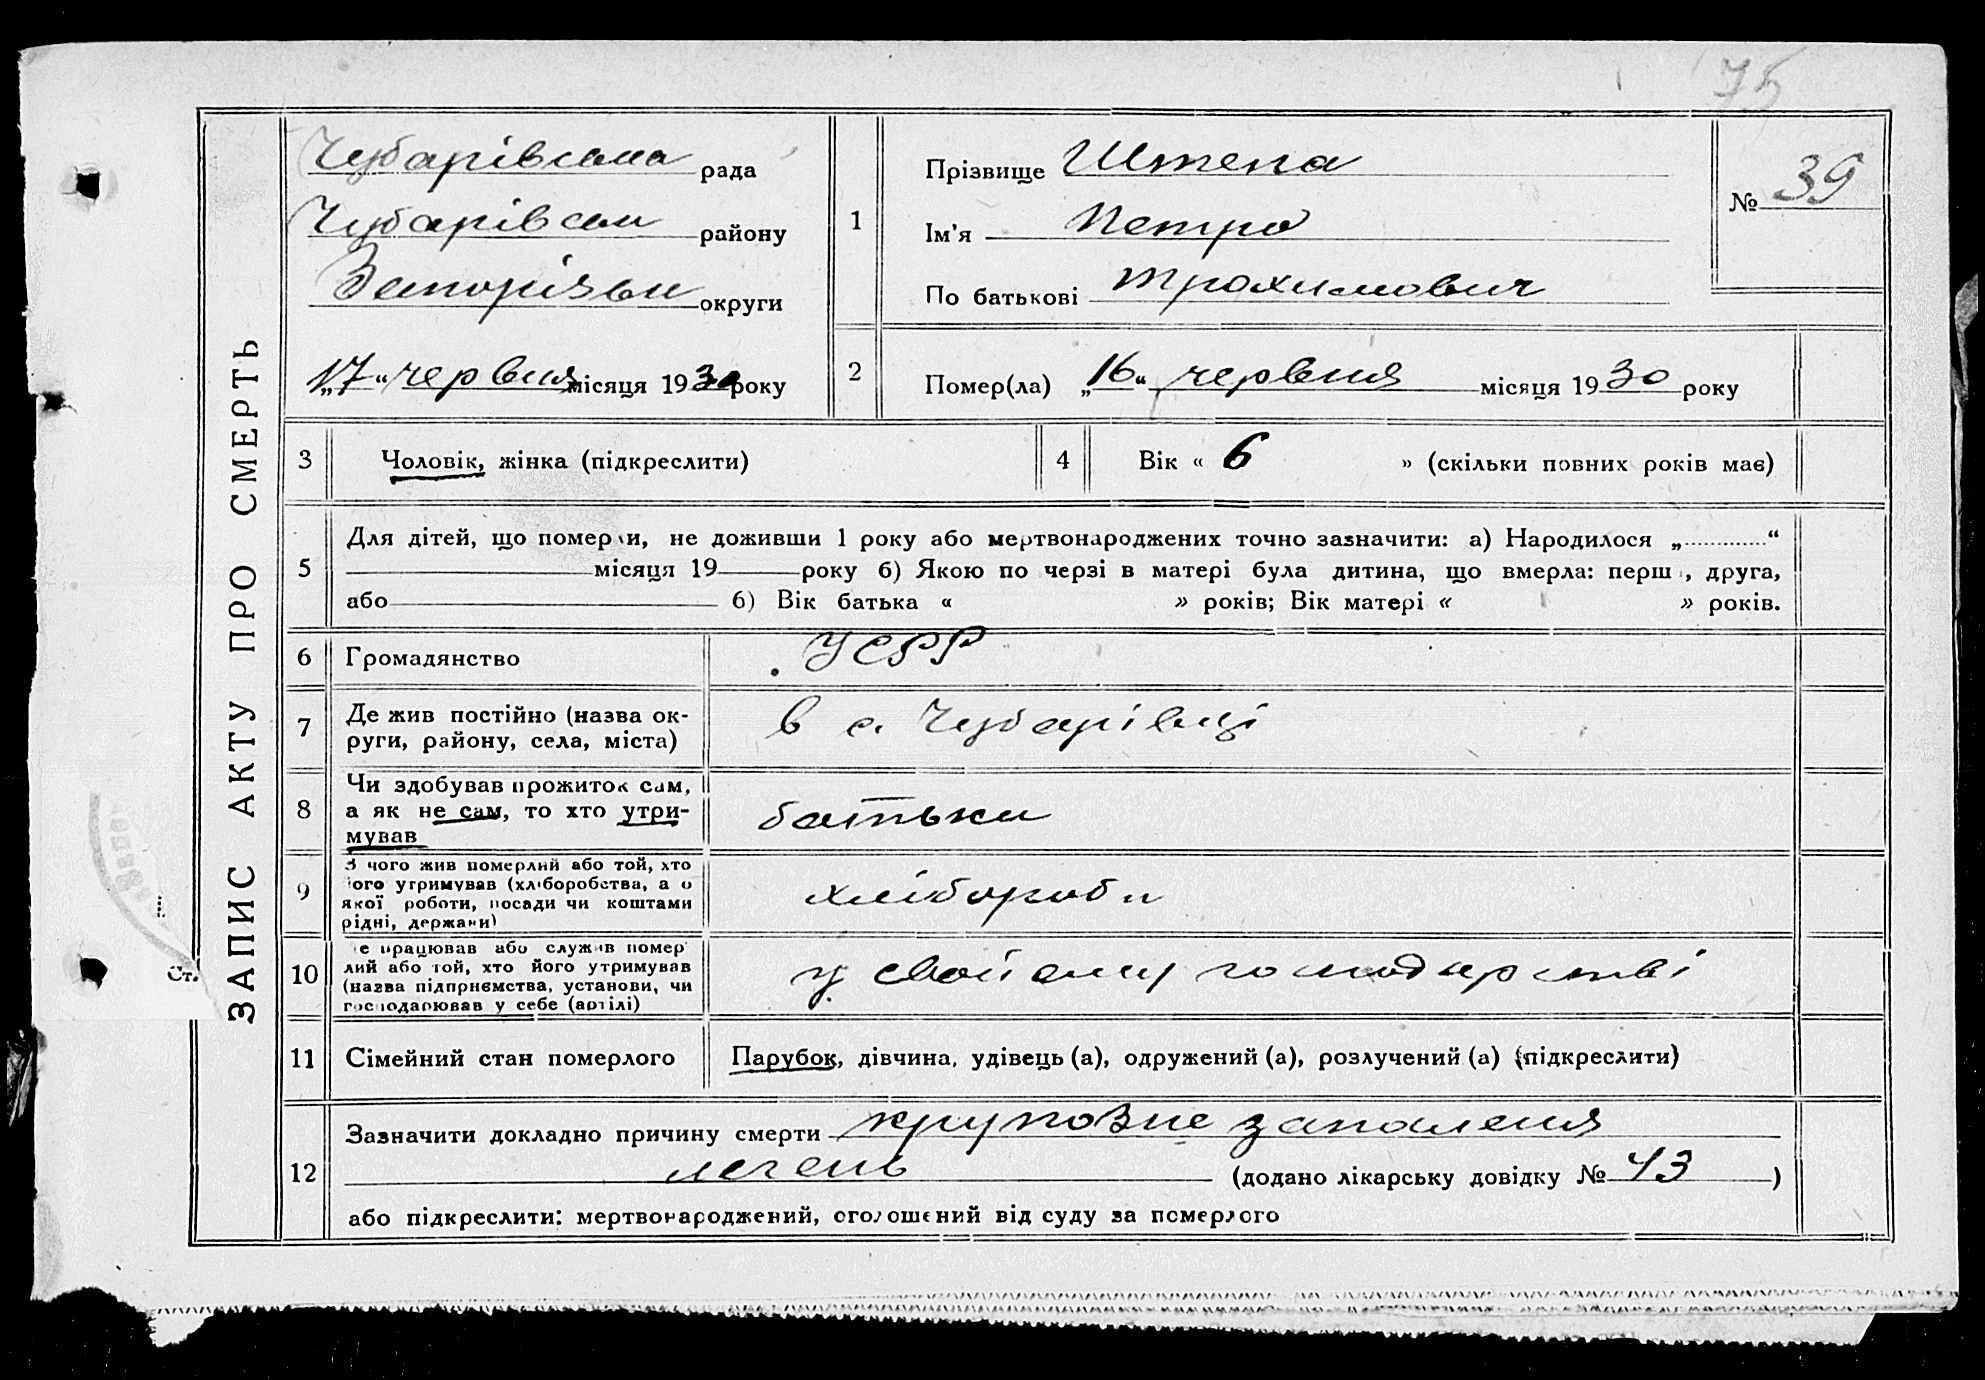 75
ЗАПИС АКТУ ПРО СМЕРТЬ
Чубарівська рада
Чубарівськ району
Запорізьк округи
„17“ червня місяця 1930 року
1
Прізвище Штепа
Ім'я Петро
По батькові Трохимович
№ 39
2
Помер(ла) „16“ червня місяця 1930 року
3 Чоловік, жінка (підкреслити)
4 Вік « 6 » (скільки повних років має)
5
Для дітей, що померли, не доживши 1 року або мертвонароджених точно зазначити: а) Народилося „ “
місяця 19 року б) Якою по черзі в матері була дитина, що вмерла: перш , друга,
або б) Вік батька « » років; Вік матері « » років.
6 Громадянство УСРР
7 Де жив постійно (назва ок-
руги, району, села, міста)
в с. Чубарівці
8
Чи здобував прожиток сам,
а як не сам, то хто утри-
мував
батьки
9
З чого жив померлий або той, хто
його утримував (хліборобства, а о
якої роботи, посади чи коштами
рідні, держави)
хлібороби
10
е працював або служив помер
лий або той, хто його утримував
(назва підприємства, установи, чи
господарював у себе (артілі)
у свойому господарстві
11 Сімейний стан померлого Парубок, дівчина, удівець (а), одружений (а), розлучений (а) (підкреслити)
12
Зазначити докладно причину смерти крупозне запалення
легень (додано лікарську довідку № 43 )
або підкреслити: мертвонароджений, оголошений від суду за померлого
Ст.